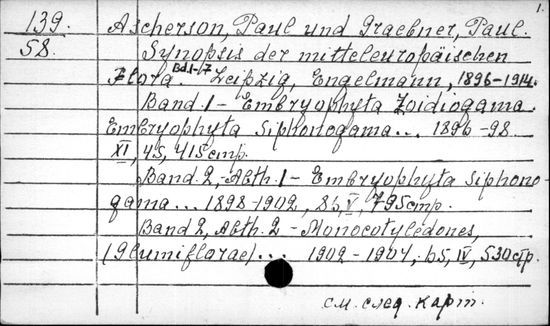 1.
139. Ascherson, Paul und Graebner, Paul.
58. Synopsis der mitteleuropäischen
Flora. Bd.1-7 Leipzig, Engelmann, 1896-1914.
Band.1 - Embryophyta Zoidiogama.
Embryophyta Siphonogama... 1896-98
XI, 45, 415 стр.
Band.2,-Abth.1 - Embryophyta Siphono-
gama... 1898-1902, 83, V, 795 стр.
Band 2, Abth.2 - Monocotyledones,
(Glumiflorae)... 1902-1904, 65, IV, 530 стр.
см. след. карт.